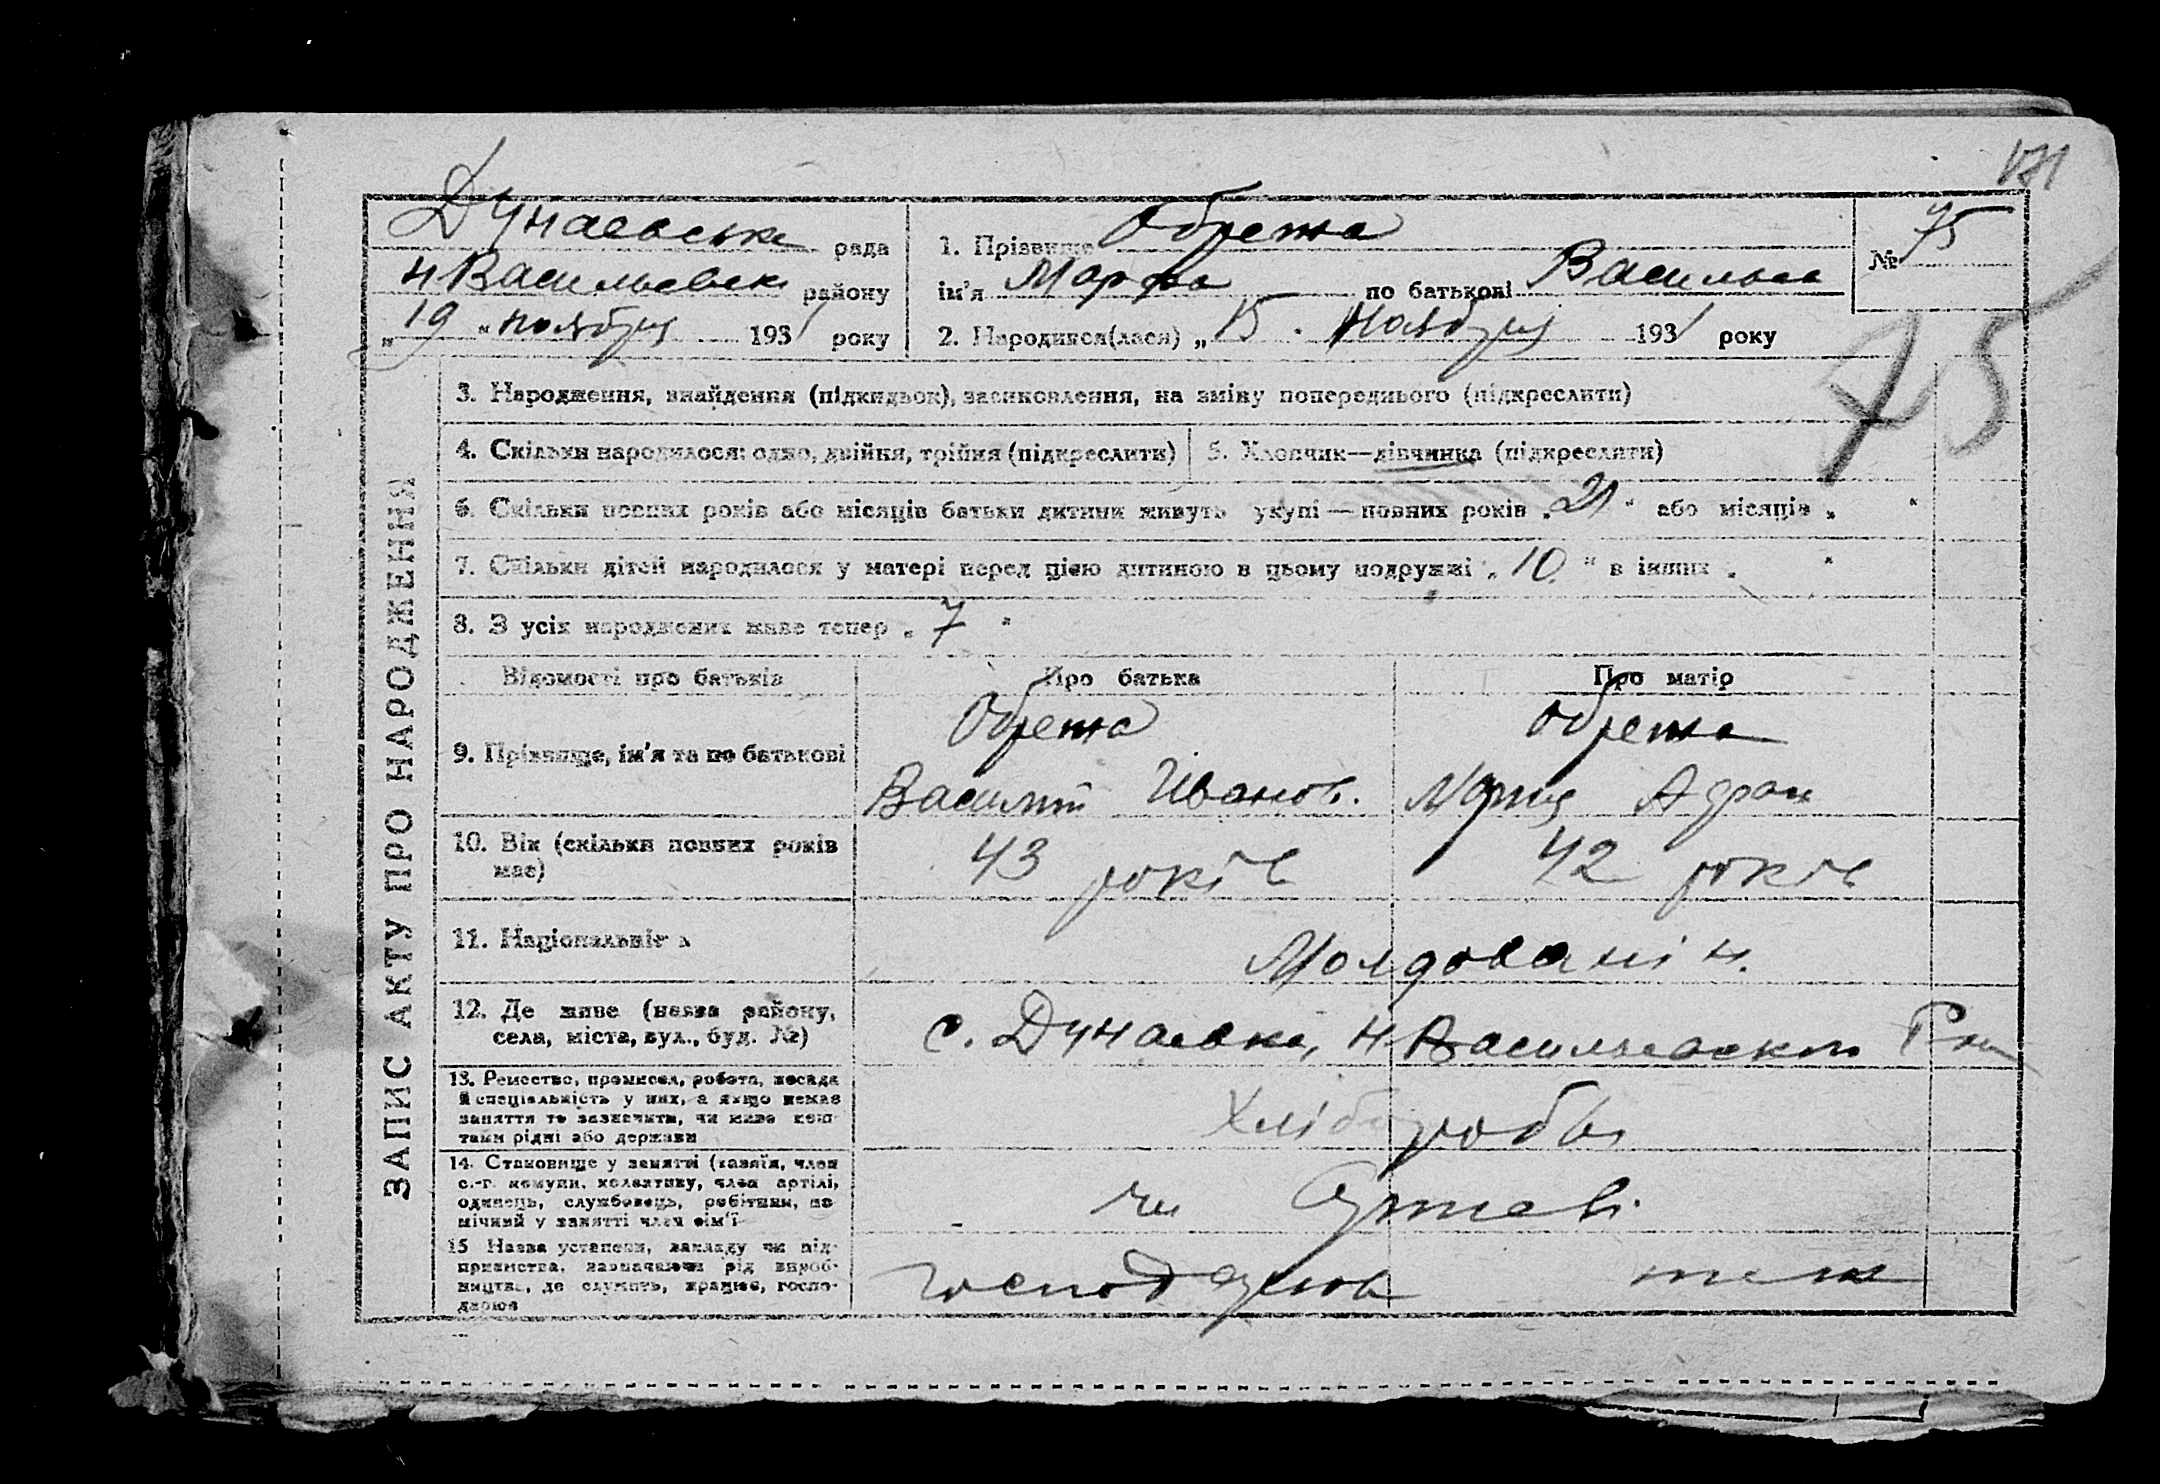 171
Дунаевське рада
Н Васильевск району
„19“ ноября 1931 року
1. Прізвище Обрежа
ім'я Марфа по батькові Васильев
2. Народився(лася) „15“ Ноября 1931 року
№ 75
75
ЗАПИС АКТУ ПРО НАРОДЖЕННЯ
3. Народження, знайдення (підкидьок), засиновлення, на зміну попереднього (підкреслити)
4. Скільки народилося: одно, двійня, трійня (підкреслити)
5. Хлопчик—дівчинка (підкреслити)
6. Скільки повних років або місяців батьки дитини живуть укупі — повних років „21“ або місяців „ “
7. Скільки дітей народилося у матері перед цією дитиною в цьому подружжі „10“ в інших „ “
8. З усіх народжених живе тепер „7“
Відомості про батьків
Про батька
Про матір
9. Прізвище, ім'я та по батькові
Обрежа
Василий Иванов.
Обрежа
Мария
10. Вік (скільки повних років
має)
43 років
42 років
11. Національність
Молдовани н.
12. Де живе (назва району,
села, міста, вул., буд. №)
с. Дунаевке, Н Васильевского Рон
13. Ремество, промисел, робота, посада
й спеціяльність у них, а якщо немає
заняття то зазначити, чи живе кош-
тами рідні або держави
Хлібороби
14. Становище у занятті (хазяїн, член
с.-г. комуни, колективу, член артілі,
одинець, службовець, робітник, по-
мічний у занятті член сім'ї
15 Назва установи, закладу чи під-
приємства, зазначаючи рід вироб-
ництва, де служить, працює, госпо-
дарює
теж